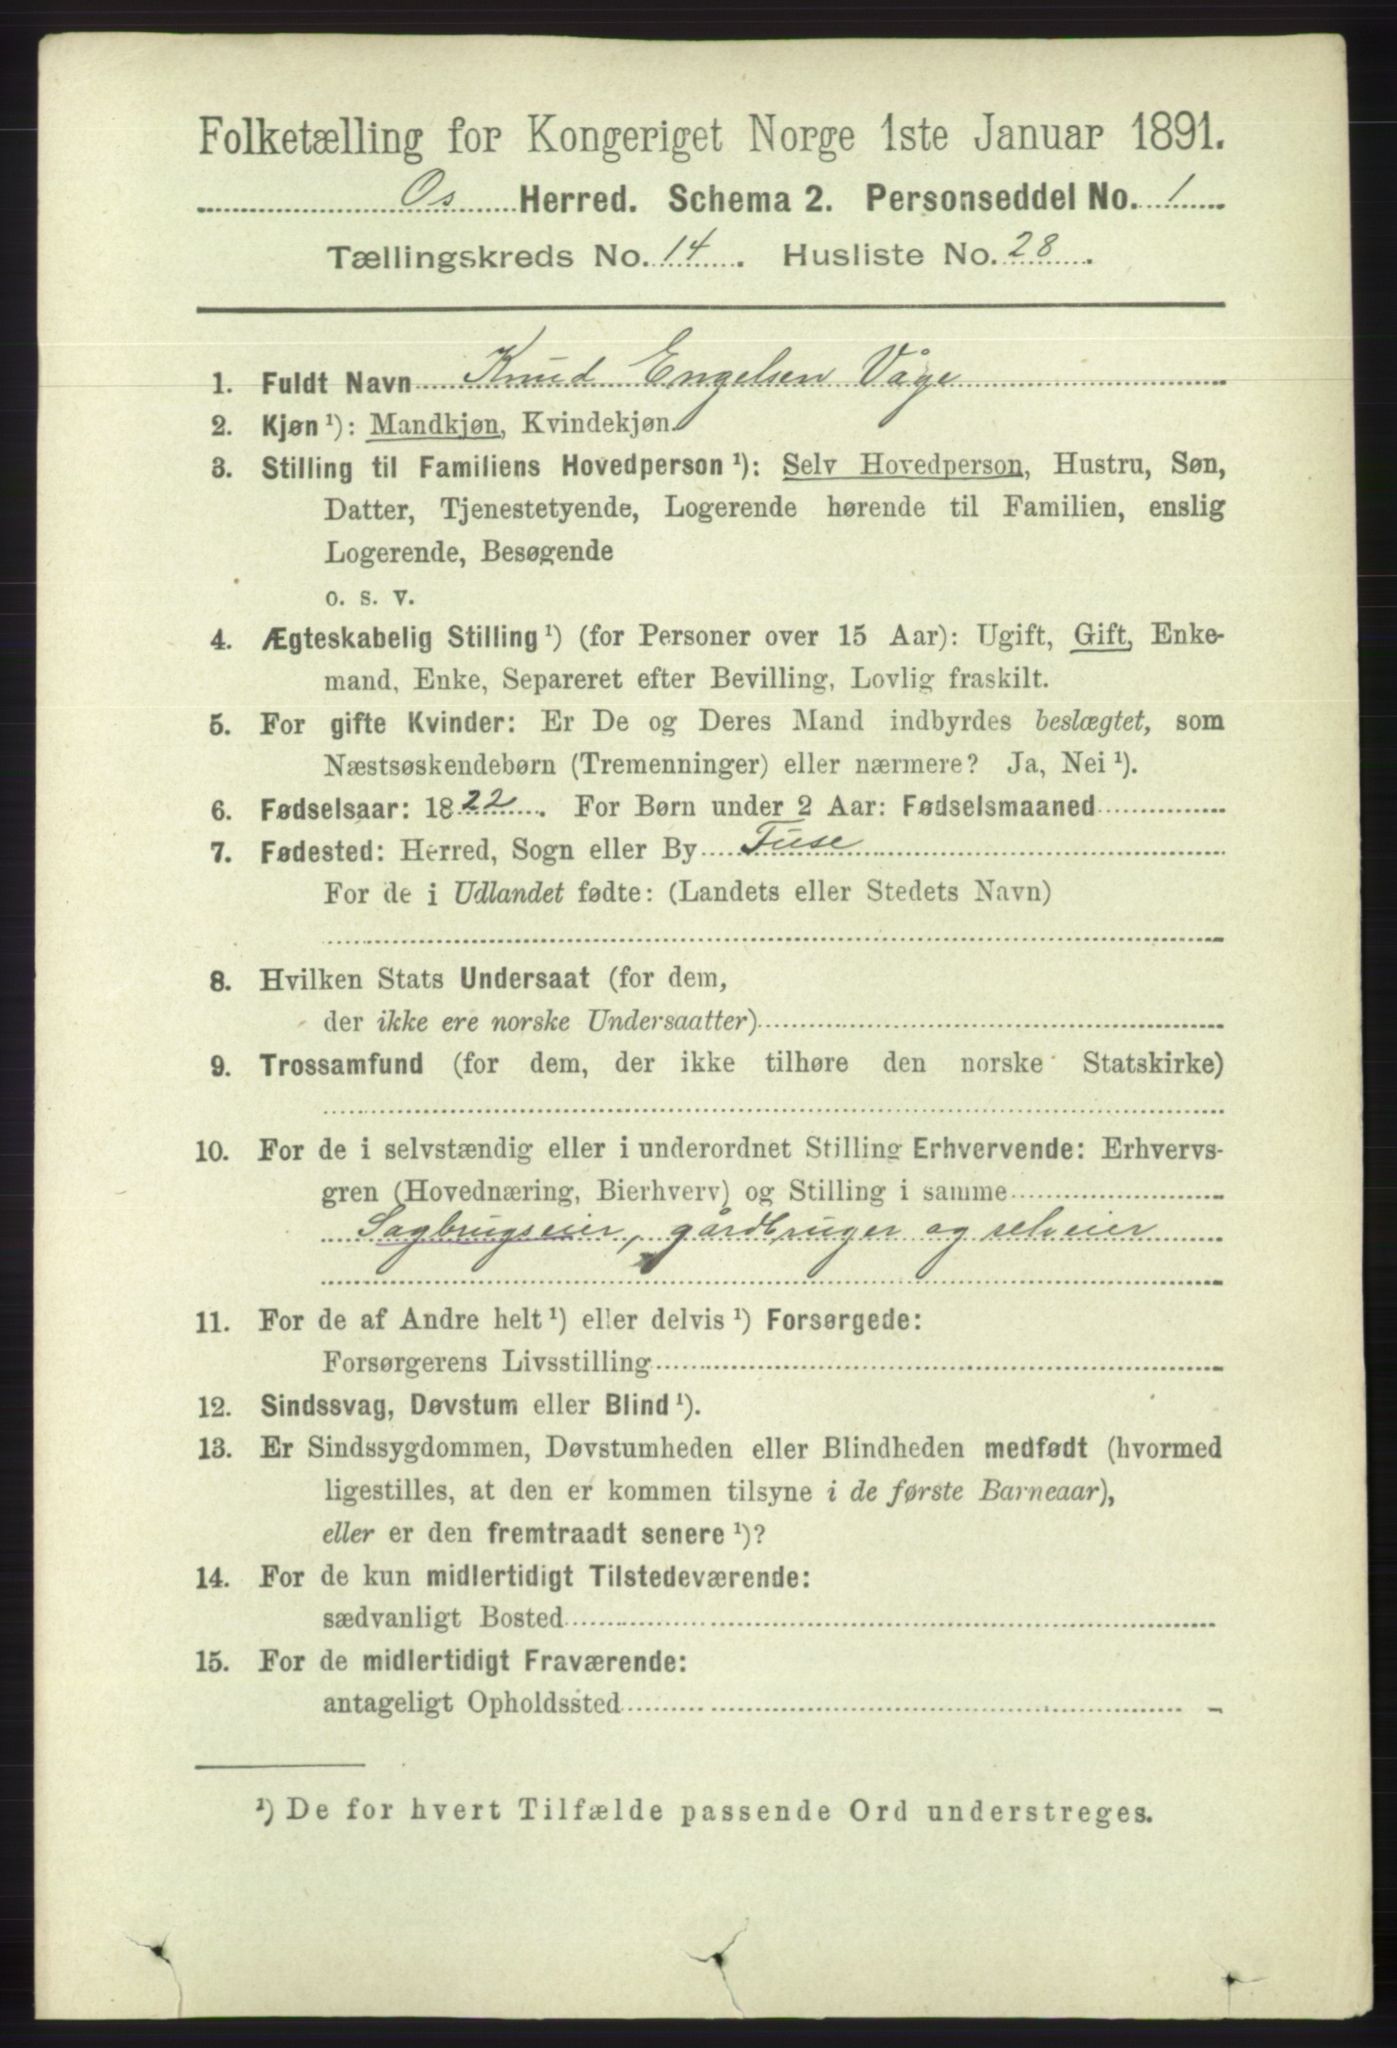 Folketælling for Kongeriget Norge 1ste Januar 1891.
Os Herred. Schema 2. Personseddel No. 1
Tællingskreds No. 14. Husliste No. 28.
1. Fuldt Navn Knud Engelsen Våge
2. Kjøn ¹): Mandkjøn, Kvindekjøn.
3. Stilling til Familiens Hovedperson ¹): Selv Hovedperson, Hustru, Søn,
Datter, Tjenestetyende, Logerende hørende til Familien, enslig
Logerende, Besøgende
o. s. v.
4. Ægteskabelig Stilling ¹) (for Personer over 15 Aar): Ugift, Gift, Enke-
mand, Enke, Separeret efter Bevilling, Lovlig fraskilt.
5. For gifte Kvinder: Er De og Deres Mand indbyrdes beslægtet, som
Næstsøskendebørn (Tremenninger) eller nærmere? Ja, Nei ¹).
6. Fødselsaar: 1822. For Børn under 2 Aar: Fødselsmaaned
7. Fødested: Herred, Sogn eller By Fuse
For de i Udlandet fødte: (Landets eller Stedets Navn)
8. Hvilken Stats Undersaat (for dem,
der ikke ere norske Undersaatter)
9. Trossamfund (for dem, der ikke tilhøre den norske Statskirke)
10. For de i selvstændig eller i underordnet Stilling Erhvervende: Erhvervs-
gren (Hovednæring, Bierhverv) og Stilling i samme
Sagbrugseier, gårdbruger og selveier
11. For de af Andre helt ¹) eller delvis ¹) Forsørgede:
Forsørgerens Livsstilling
12. Sindssvag, Døvstum eller Blind ¹).
13. Er Sindssygdommen, Døvstumheden eller Blindheden medfødt (hvormed
ligestilles, at den er kommen tilsyne i de første Barneaar),
eller er den fremtraadt senere ¹)?
14. For de kun midlertidigt Tilstedeværende:
sædvanligt Bosted
15. For de midlertidigt Fraværende:
antageligt Opholdssted
¹) De for hvert Tilfælde passende Ord understreges.